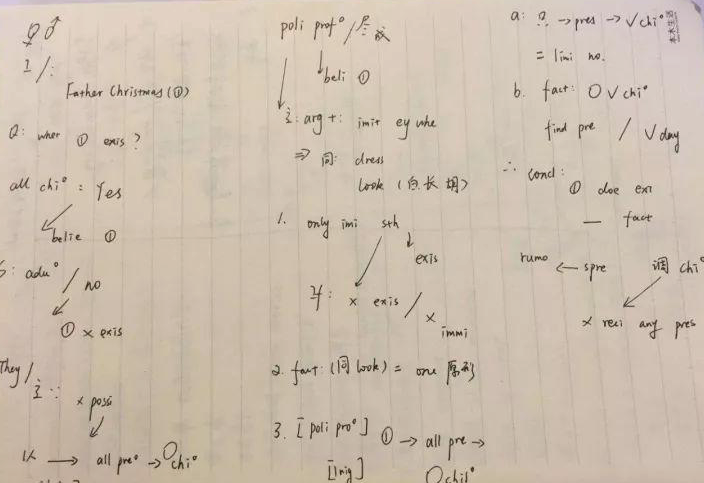 ♀♂
Father Christmas (①)
Q: wher ① exis?
all chi° : Yes
belie ①
adu° / no
① × exis
They /
× possi
1人 → all pre° → ○ chi°
poli prof° /
↓ beli ①
主: arg +: imit ey whe
⇒ 同: dress
look (白长胡)
1. only imi sth
exis
× exis /
× immi
2. fact: (同 look) = one 原形
3. [poli pro°] ① → all pre →
○ chil°
a: → pres → √ chi°
= limi no.
b. fact: ○ √ chi°
find pre / √ day
∴ concl:
① doe exi
— fact
rumo ← spre 调 chi°
× recei any pres